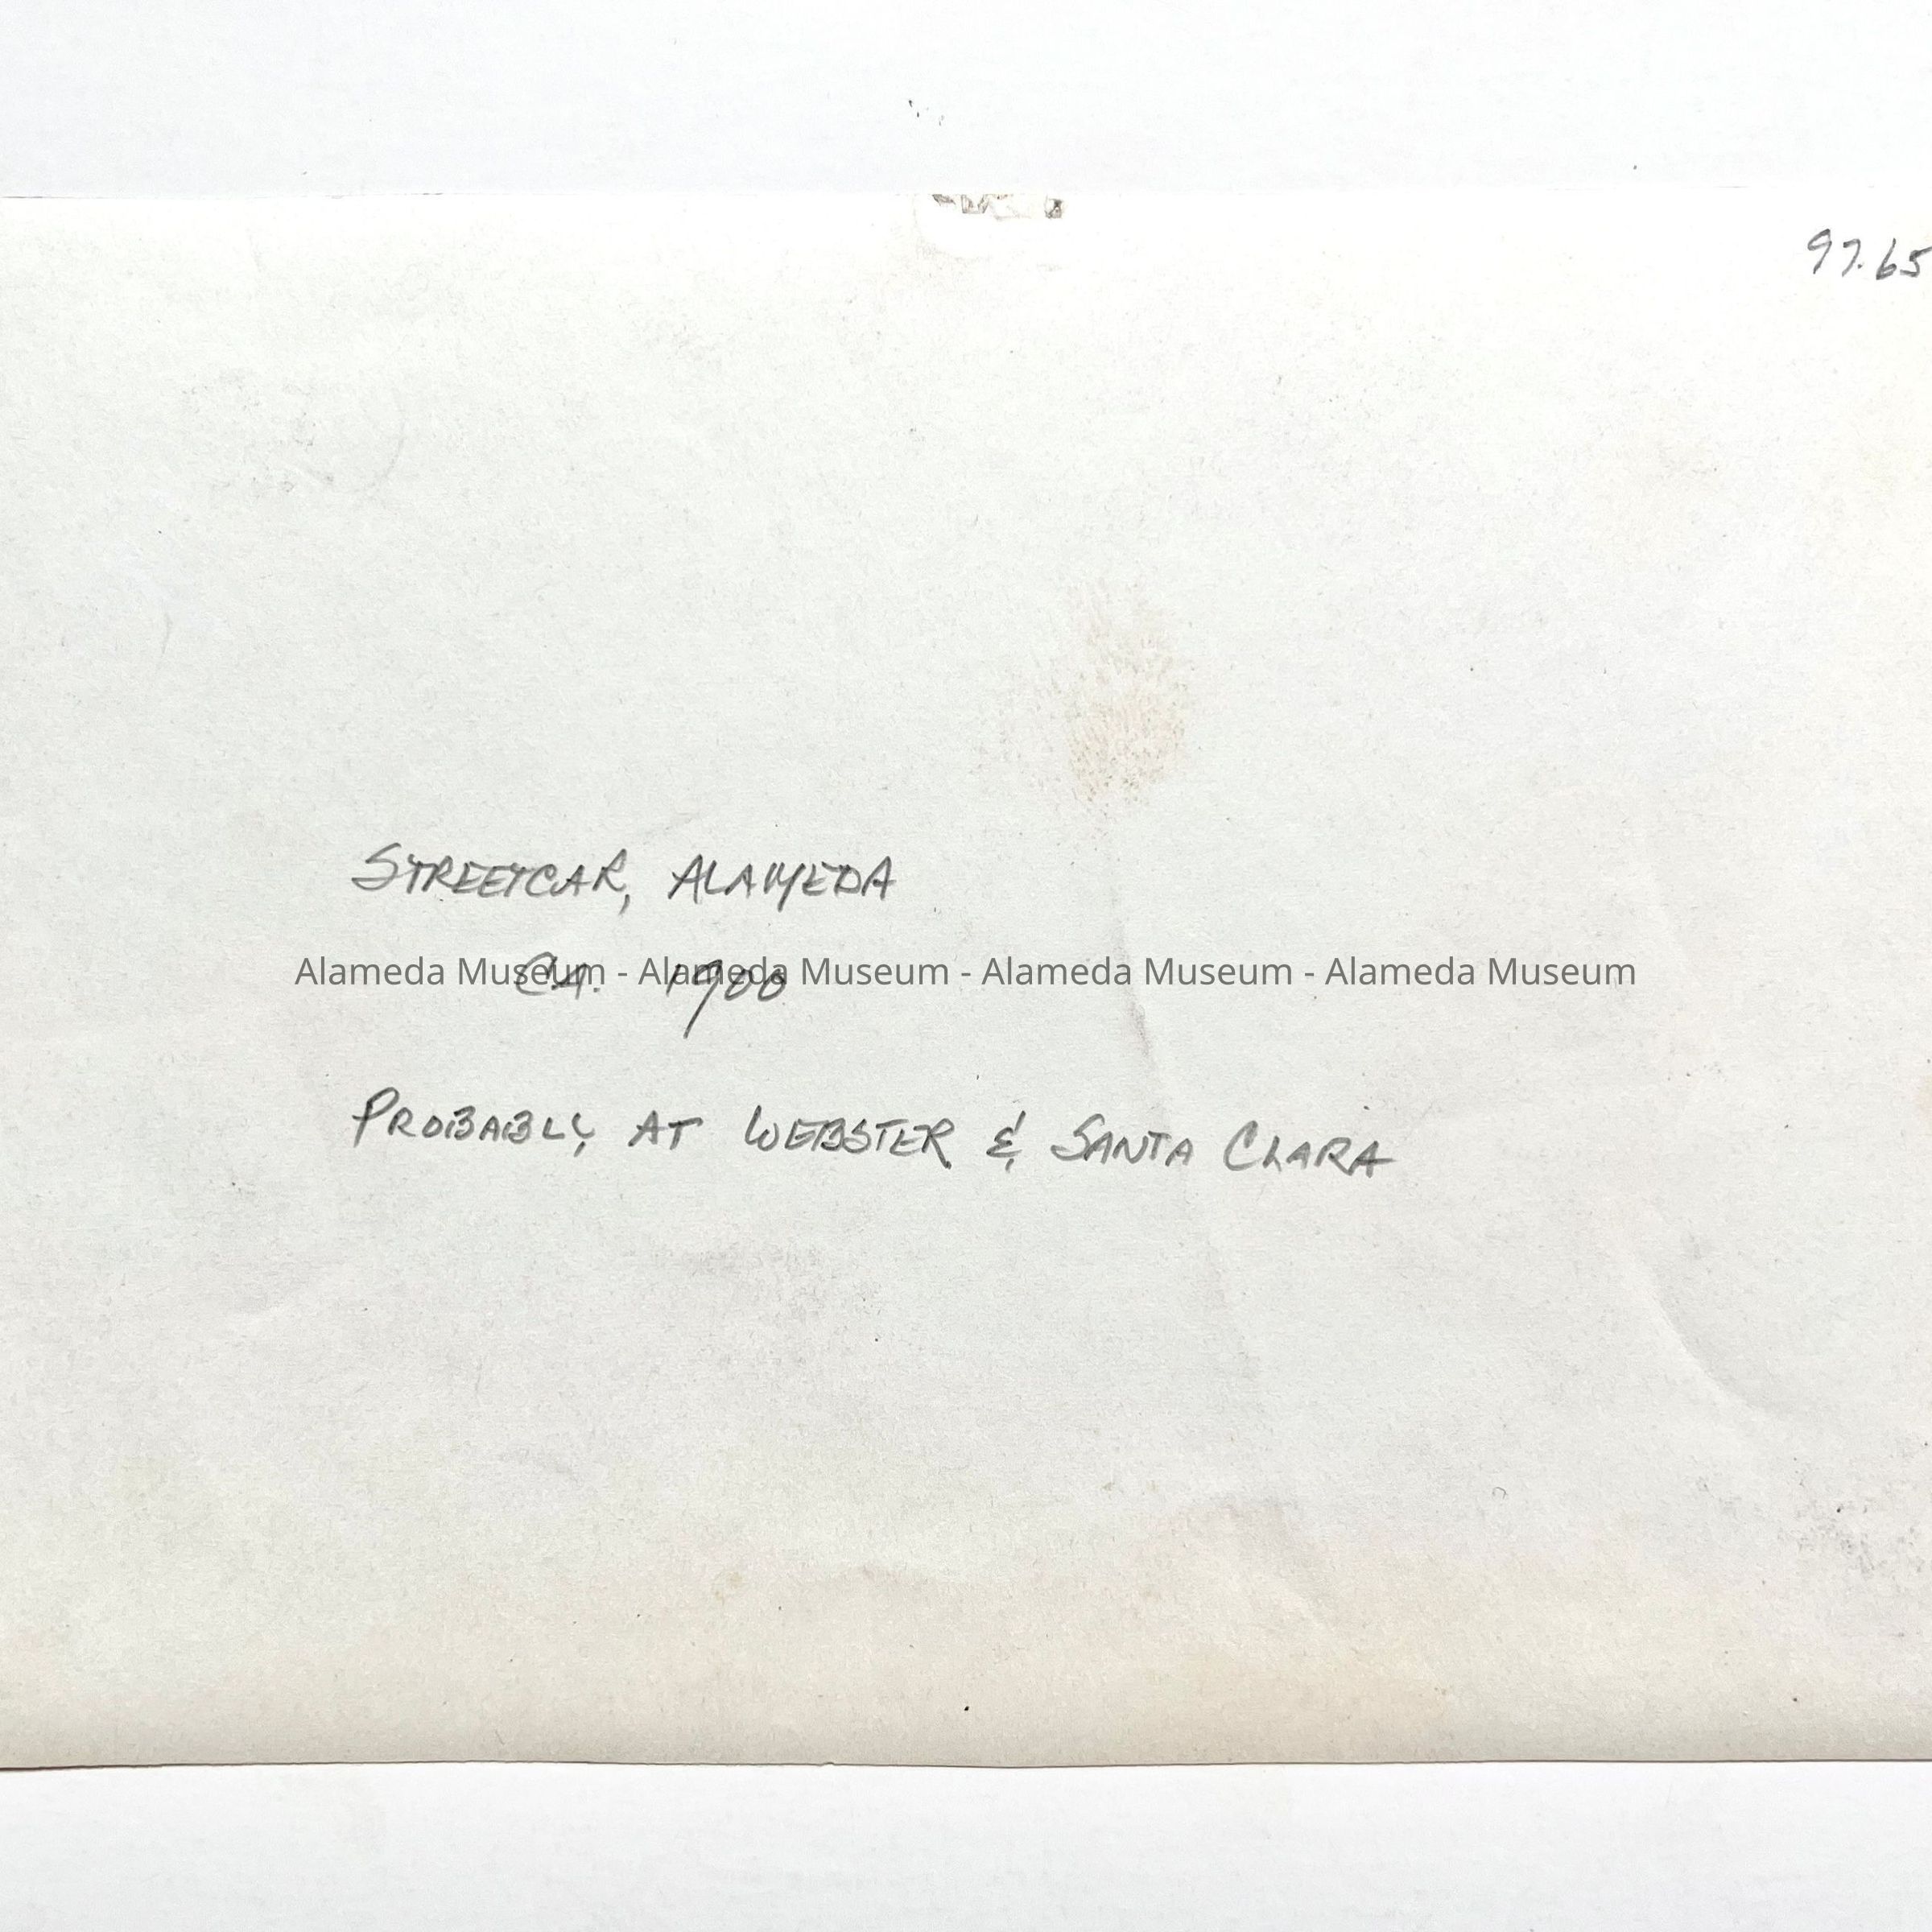 97.65
STREETCAR, ALAMEDA
CA. 1900
Alameda Museum - Alameda Museum - Alameda Museum - Alameda Museum
PROBABLY AT WEBSTER & SANTA CLARA